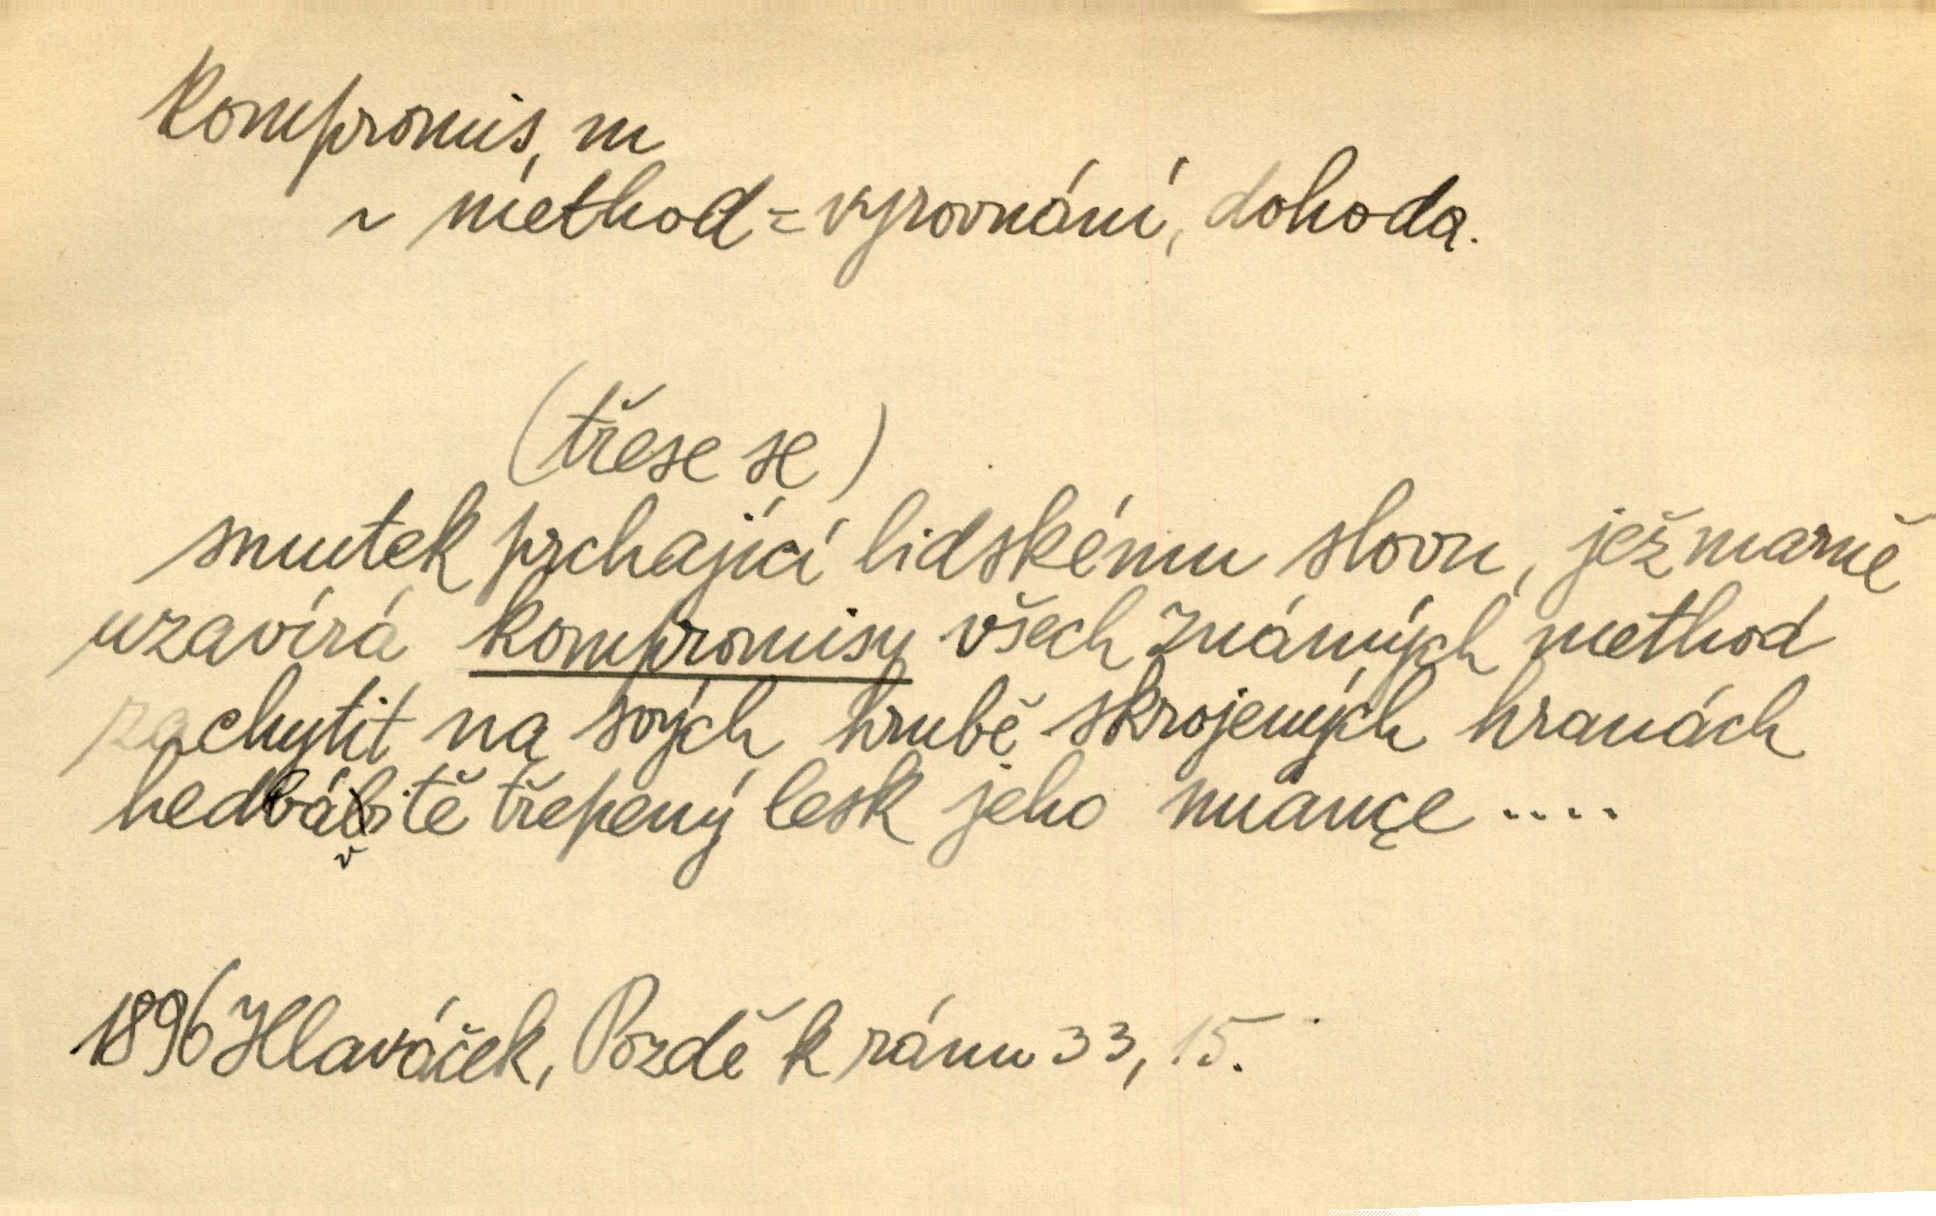 kompromis, m
~ method = vyrovnání, dohoda.
(třese se)
smutek prchající lidskému slovu, jež marně
uzavírá kompromisy všech známých method
zachytit na svých hrubě skrojených hranách
hedvábitě třepený lesk jeho nuançe ....
v
1896 Hlaváček, Pozdě k ránu 33, 15.